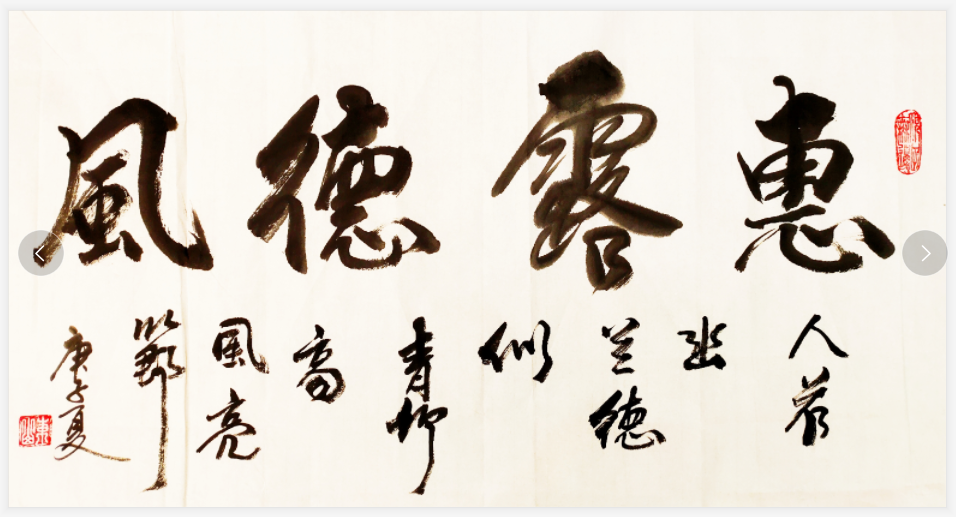 惠露德風
人若
幽
兰德
似
青竹
高
風亮
節
庚子夏